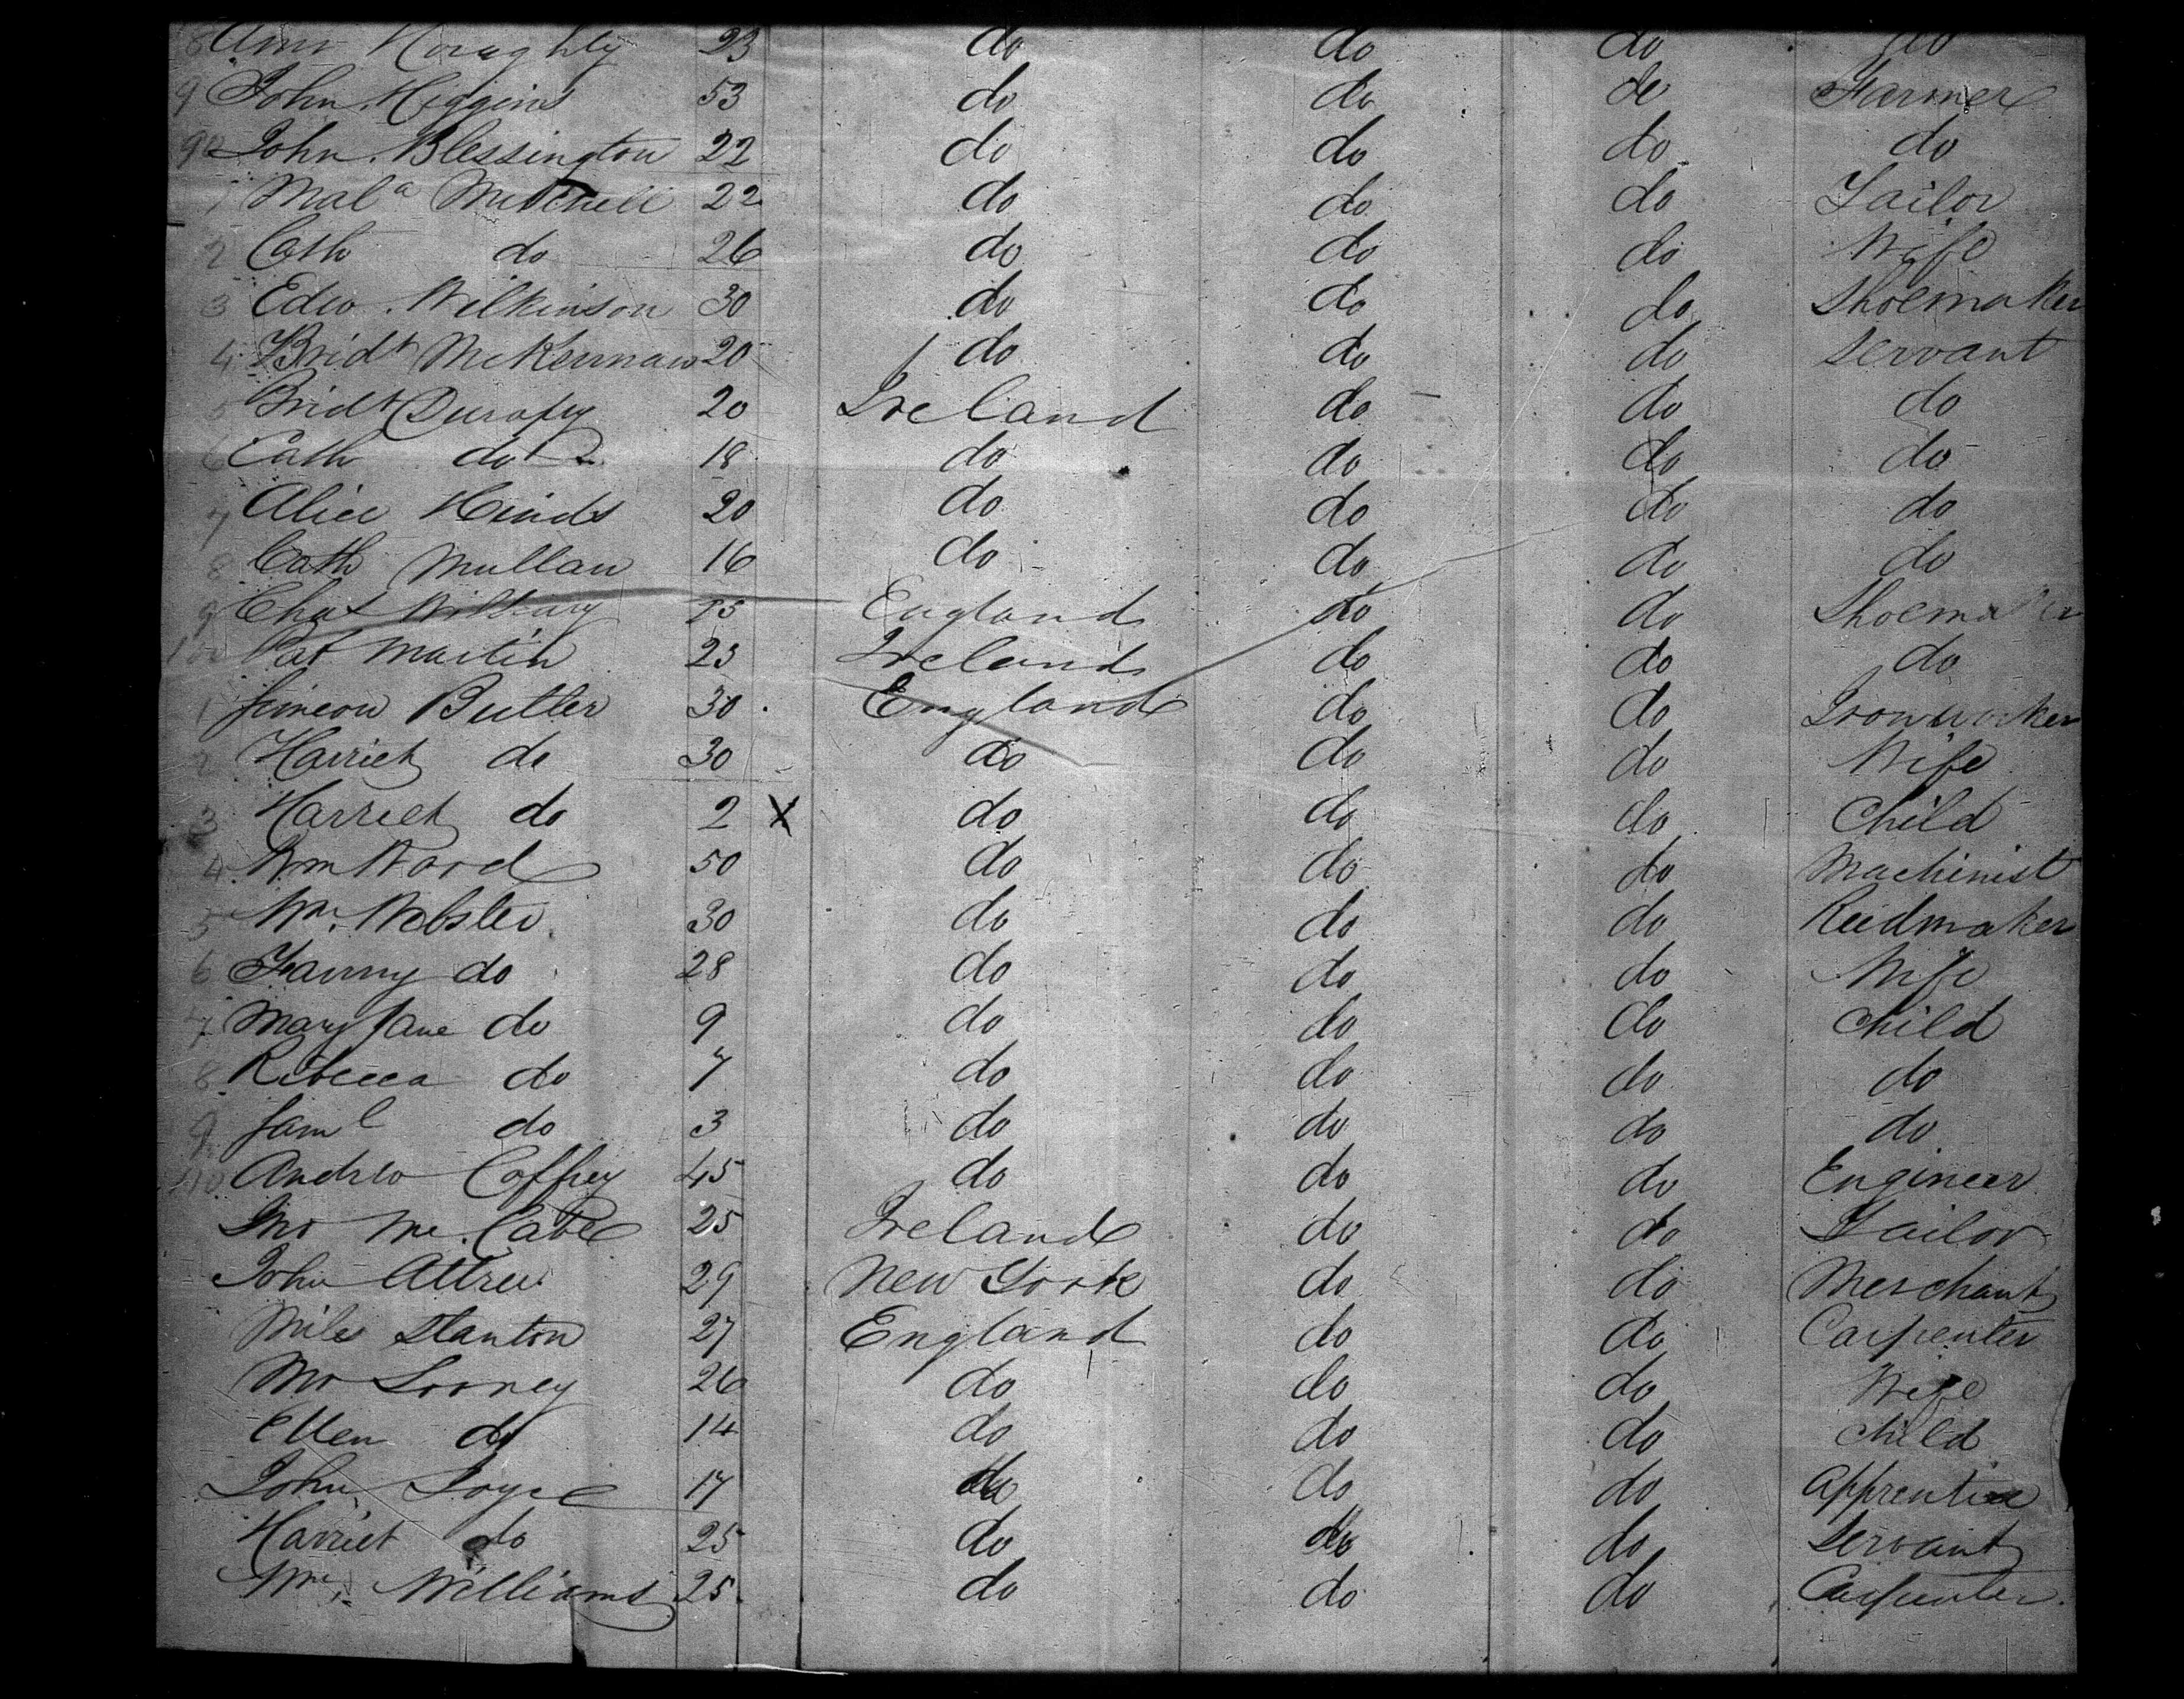 8 Ann 23 do do do do
9 John Higgins 53 do do do Farmer
90 John Blessington 22 do do do do
1 Mal a Mitchell 22 do do do Tailor
2 Cath do 26 do do do Wife
3 Edw. Wilkinson 30 do do do Shoemaker
4 Bridt McKernnan 20 do do do Servant
5 Bridt 20 Ireland do do do
6 Cath do 18 do do do do
7 Alice Hinds 20 do do do do
8 Cath Mullan 16 do do do do
9 Chas England do do Shoemaker
100 Pat Martin 23 Ireland do do do
1 Simeon Butler 30 England do do Ironworker
2 Harriet do 30 do do do Wife
3 Harriet do 2 X do do do Child
4 Wm Ward 50 do do do Machinist
5 Wm. Webster 30 do do do Reedmaker
6 Fanny do 28 do do do Wife
7 Mary Jane do 9 do do do Child
8 Rebecca do 7 do do do do
9 Saml do 3 do do do do
110 Andrew Coffey 45 do do do Engineer
Jno Mc.Cabe 25 Ireland do do Tailor
John 29 New York do do Merchant
Miles Stanton 27 England do do Carpenter
Looney 26 do do do Wife
Ellen do 14 do do do Child
John Joyce 17 do do do Apprentice
Harriet do 25 do do do Servant
Wm. Williams 25 do do do Carpenter